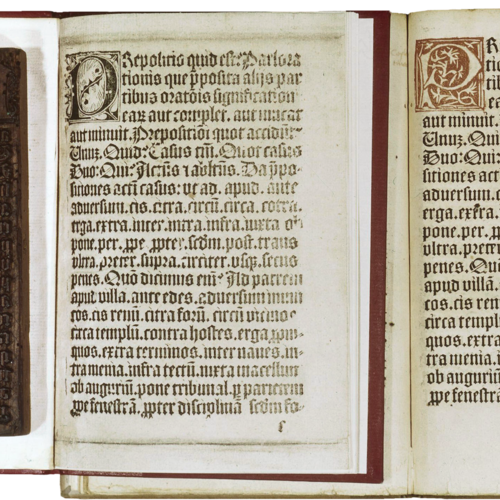 PRepositio quid est: Pars ora
tionis que p̲posita alijs par
tibus oratōis significationē
eaꝝ aut complet. aut mutat
aut minuit. Prepositiōi quot accidūt
Unuꝫ. Quid: Casus tm̄. Quot casus
Duo: Qui: Actūs ⁊ abltūs. Da p̄po-
sitiones actū casus: ut ad. apud. ante
aduersum. cis. citra. circū. circa. cōtra.
erga. extra. inter. intra. infra. iuxta ob
pone. per. ꝓpe. ꝓpter. scdm̄. post. trans
vltra. preter. supra. circiter. vsqꝫ. secus
penes. Quō dicimus em̄: Ad patrem
apud villā. ante edes. aduersum inimi
cos. cis renū. citra forū. circū vicinos
circa templū. contra hostes. erga ꝓpin
quos. extra terminos. inter naues. in-
tra menia. infra tectū. iuxta macellum
ob auguriū. pone tribunal. ꝑ parietem
ꝓpe fenestrā. ꝓpter disciplinā scdm̄ fo-
PR
tio
tib
aut minuit.
Unuꝫ. Quid
Duo: Qui:
sitiones act
aduersum. c
erga. extra.
pone. per. ꝓ
vltra. preter
penes. Quō
apud villā.
cos. cis renū
circa templ
quos. extra
tra menia. i
ob auguriū
ꝓpe fenestrā